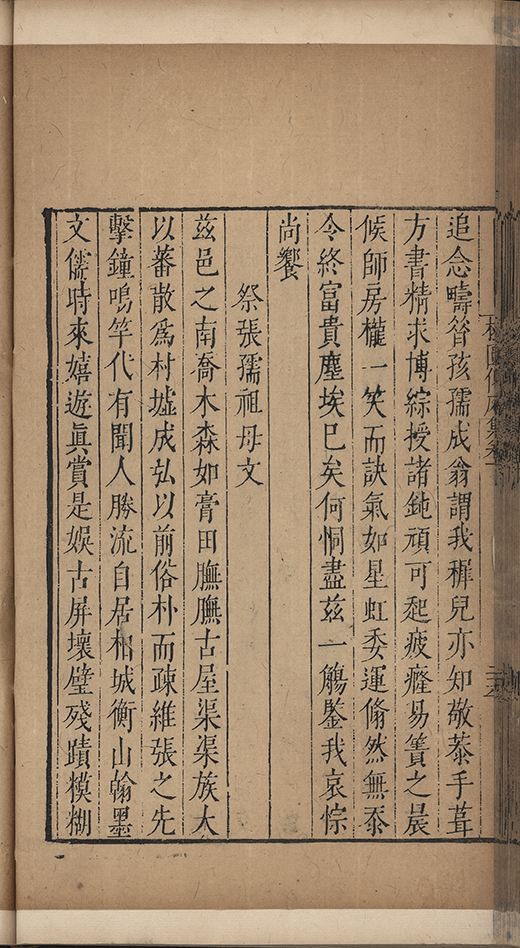 追念疇昝孩孺成翁謂我穉兒亦知敬恭手葺
方書精求博綜授諸鈍頑可起疲癃易簀之晨
候師房櫳一笑而訣氣如星虹委運翛然無忝
令終富貴塵埃已矣何恫盡茲一觴鑒我哀悰
尚饗
祭張孺祖母文
茲邑之南喬木森如膏田膴膴古屋渠渠族大
以蕃散爲村墟成弘以前俗朴而疎維張之先
擊鐘鳴竽代有聞人勝流自居相城衡山翰墨
文儒時來嬉遊眞賞是娛古屏壞壁殘蹟糢糊